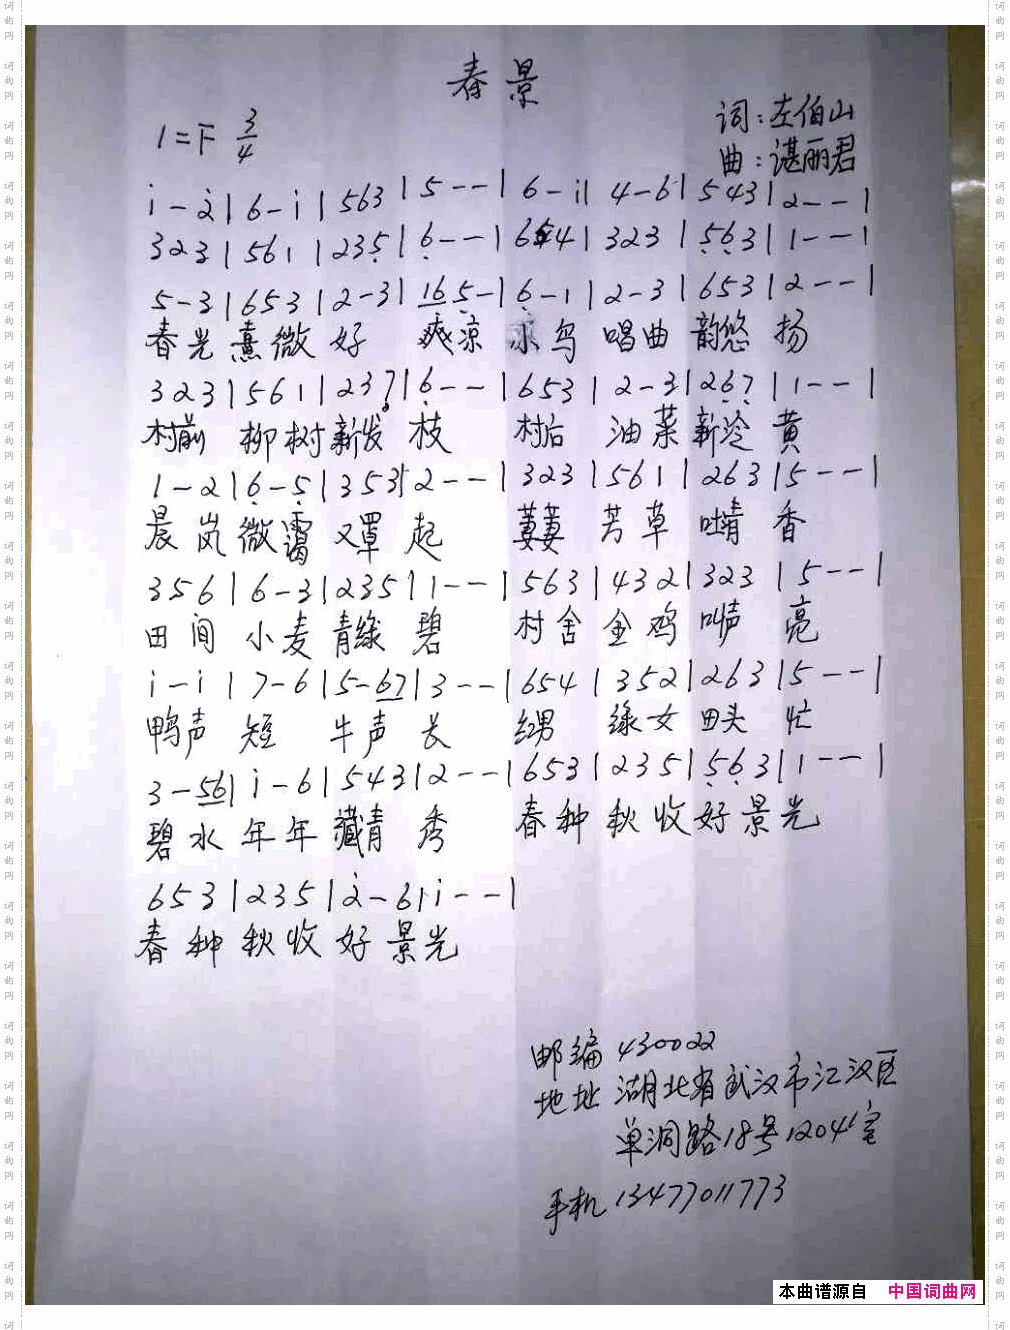 春景
1=F 3/4
词:左伯山
曲:谌丽君
i - 2̇ | 6 - i | 5 6 3 | 5 - - | 6 - i | 4 - 6 | 5 4 3 | 2 - - |
3 2 3 | 5 6 1 | 2 3 5̣ | 6̣ - - | 6 5 4 | 3 2 3 | 5̣ 6̣ 3 | 1 - - |
5 - 3 | 6 5 3 | 2 - 3 | 16 5̣ - | 6̣ - 1 | 2 - 3 | 6 5 3 | 2 - - |
春光熹微好 爽凉 鸟唱曲韵悠扬
3 2 3 | 5 6 1 | 2 3 7̣ | 6̣ - - | 6 5 3 | 2 - 3 | 2 6̣ 7̣ | 1 - - |
村前柳树新发枝 村后油菜新冷黄
1 - 2 | 6̣ - 5̣ | 3 5 3 | 2 - - | 3 2 3 | 5 6 1 | 2 6 3 | 5 - - |
晨岚微霭又罩起 萋萋芳草吐青香
3 5 6 | 6 - 3 | 2 3 5 | 1 - - | 5 6 3 | 4 3 2 | 3 2 3 | 5 - - |
田间小麦青绿碧 村舍金鸡叫声亮
i - i | 7 - 6 | 5 - 67 | 3 - - | 6 5 4 | 3 5 2 | 2 6 3 | 5 - - |
鸭声短 牛声长 红男绿女田头忙
3 - 56 | i - 6 | 5 4 3 | 2 - - | 6 5 3 | 2 3 5 | 5̣ 6̣ 3 | 1 - - |
碧水年年藏青秀 春种秋收好景光
6 5 3 | 2 3 5 | 2̇ - 6 | i - - |
春种秋收好景光
邮编 430022
地址 湖北省武汉市江汉区
单洞路18号1204室
手机 13477011773
本曲谱源自 中国词曲网
词曲网